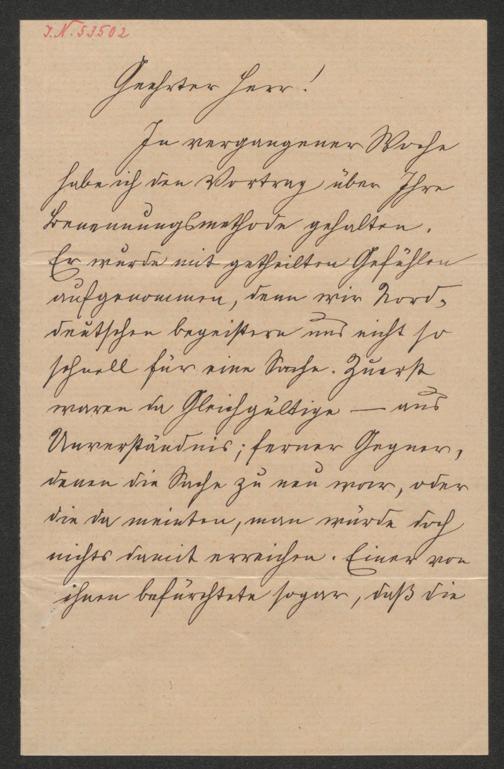 J.N. 53502
Geehrter Herr!
In vergangener Woche
habe ich den Vortrag über Ihre
Benennungsmethode gehalten.
Er wurde mit getheilten Gefühlen
aufgenommen, denn wir Nord-
deutschen begeistern uns nicht so
schnell für eine Sache. Zuerst
waren da Gleichgültige — aus
Unverständnis; ferner Gegner,
denen die Sache zu neu war, oder
die da meinten, man würde doch
nichts damit erreichen. Einer von
ihnen befürchtete sogar, daß die